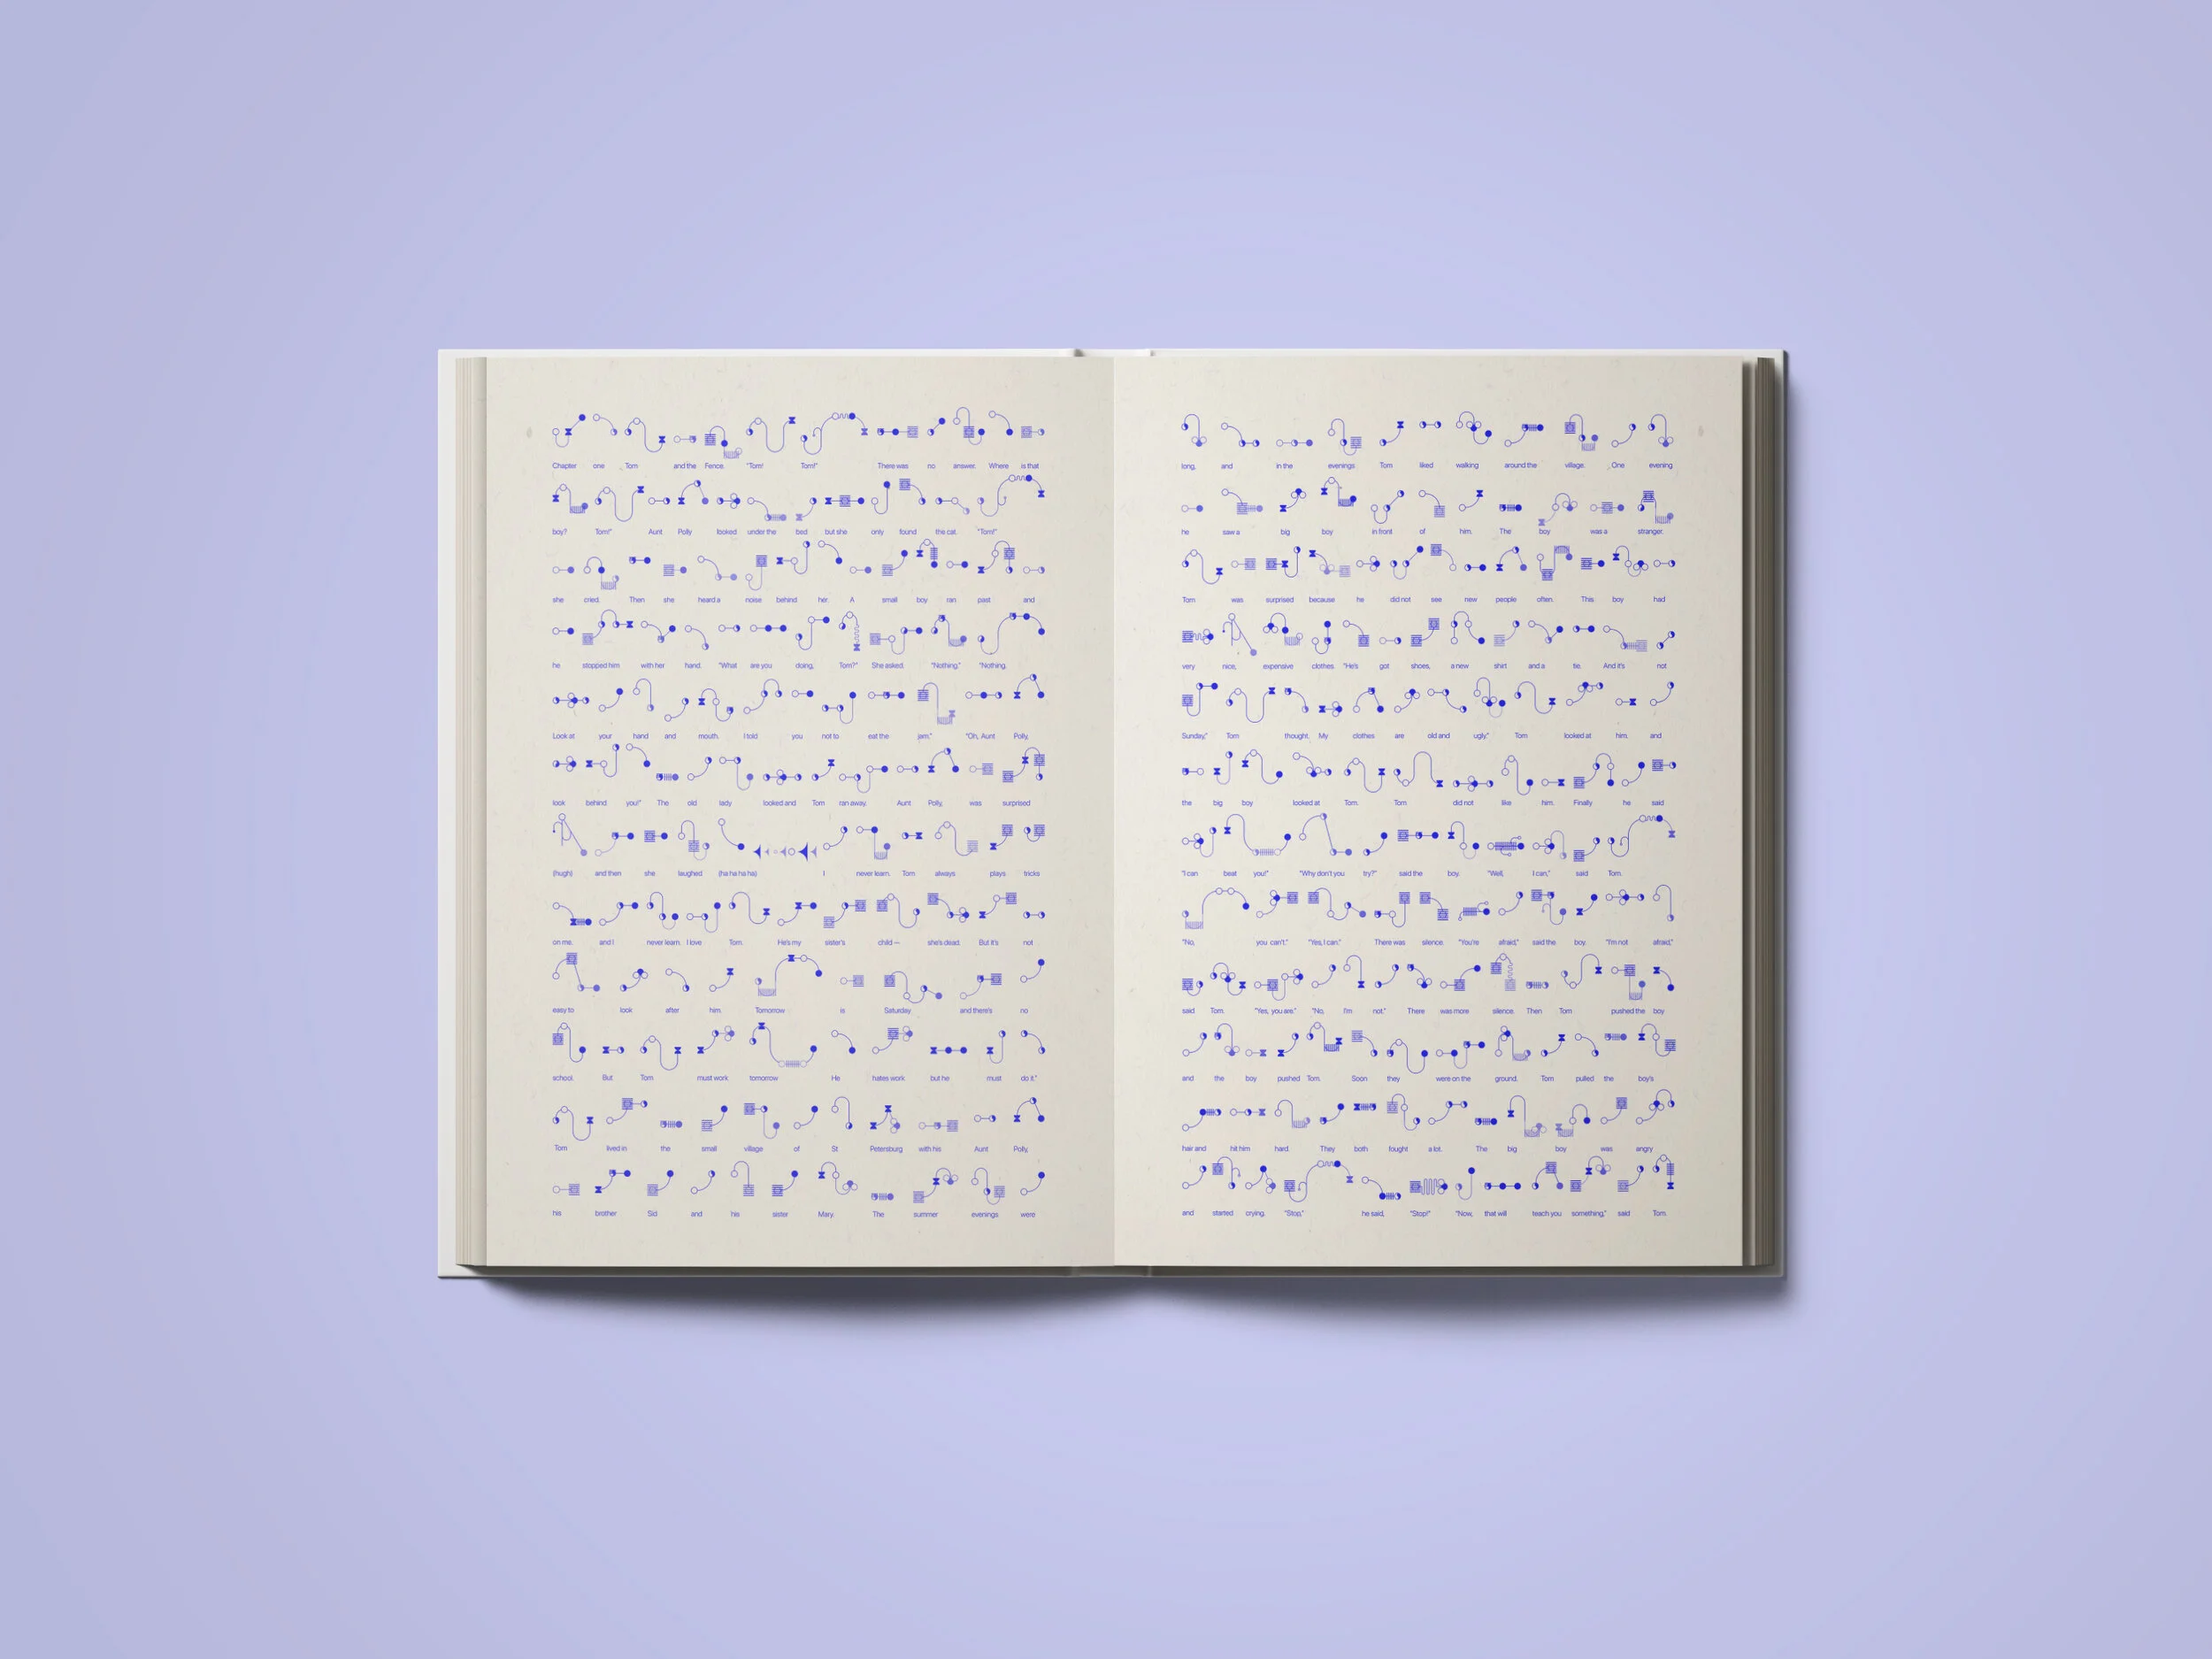 Chapter one Tom and the Fence. "Tom! Tom!" There was no answer. Where is that
boy? Tom!" Aunt Polly looked under the bed but she only found the cat. "Tom!"
she cried. Then she heard a noise behind her. A small boy ran past and
he stopped him with her hand. "What are you doing, Tom?" She asked. "Nothing." "Nothing.
Look at your hand and mouth. I told you not to eat the jam." "Oh, Aunt Polly,
look behind you!" The old lady looked and Tom ran away. Aunt Polly, was surprised
(hugh) and then she laughed (ha ha ha ha) I never learn. Tom always plays tricks
on me. and I never learn. I love Tom. He's my sister's child — she's dead. But it's not
easy to look after him. Tomorrow is Saturday and there's no
school. But Tom must work tomorrow He hates work but he must do it."
Tom lived in the small village of St Petersburg with his Aunt Polly,
his brother Sid and his sister Mary. The summer evenings were
long, and in the evenings Tom liked walking around the village. One evening
he saw a big boy in front of him. The boy was a stranger.
Tom was surprised because he did not see new people often. This boy had
very nice, expensive clothes. "He's got shoes, a new shirt and a tie. And it's not
Sunday," Tom thought. My clothes are old and ugly." Tom looked at him. and
the big boy looked at Tom. Tom did not like him. Finally he said
"I can beat you!" "Why don't you try?" said the boy. "Well, I can," said Tom.
"No, you can't." "Yes, I can." There was silence. "You're afraid," said the boy. "I'm not afraid,"
said Tom. "Yes, you are." "No, I'm not." There was more silence. Then Tom pushed the boy
and the boy pushed Tom. Soon they were on the ground. Tom pulled the boy's
hair and hit him hard. They both fought a lot. The big boy was angry
and started crying. "Stop," he said, "Stop!" "Now, that will teach you something," said Tom.